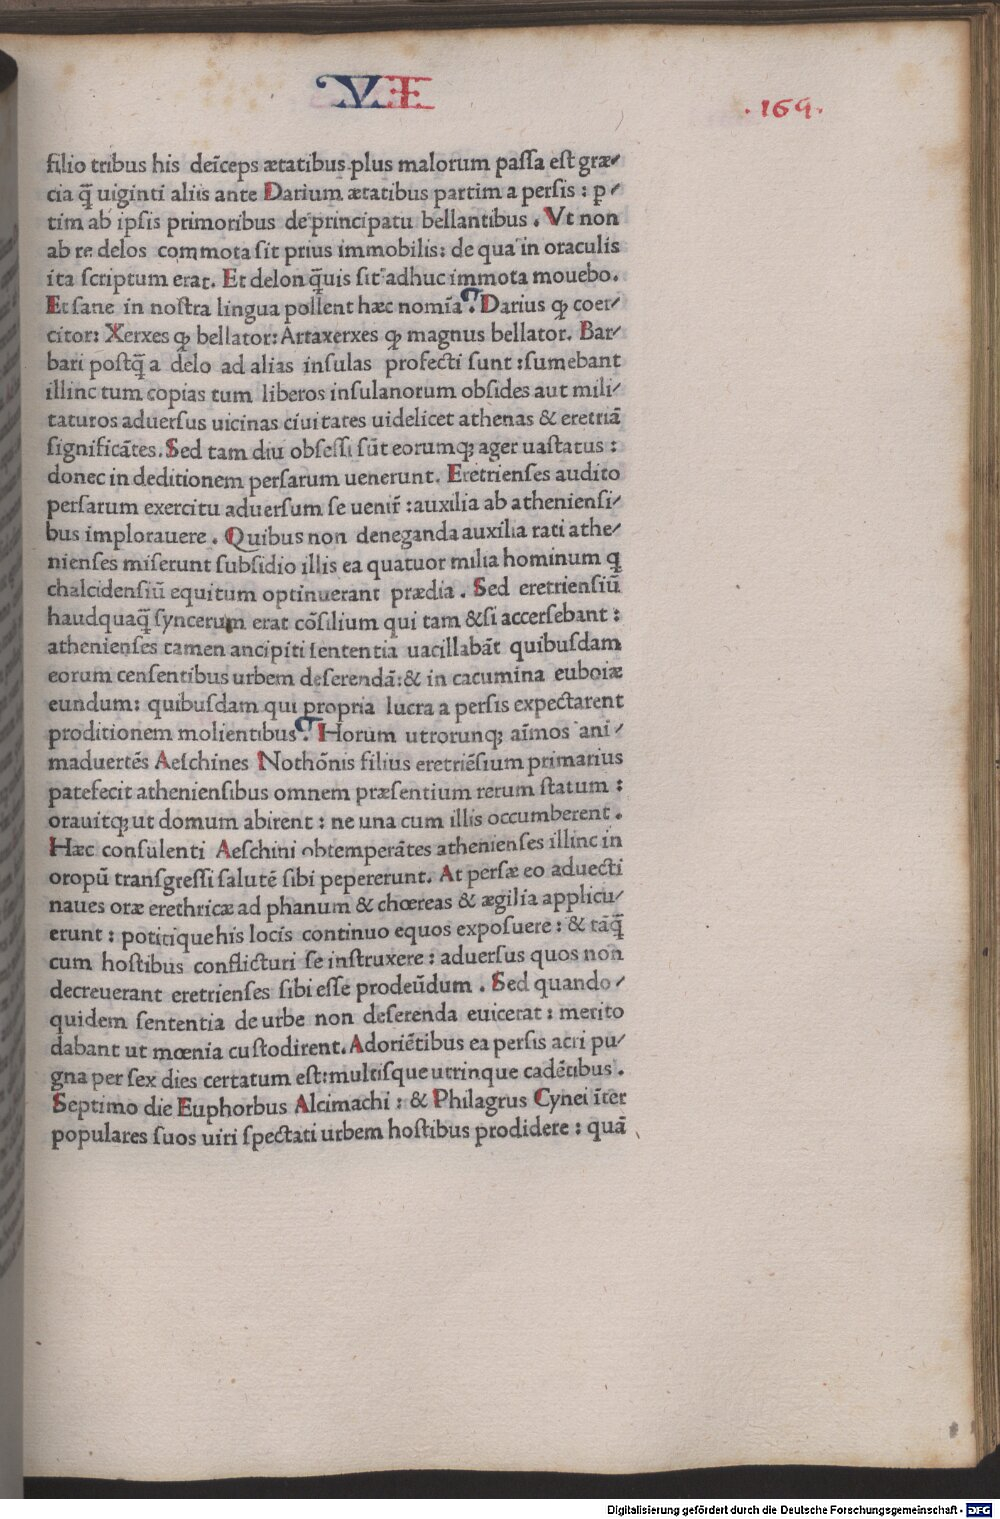 VI
.169.
filio tribus his deīceps ætatibus plus malorum paſſa eſt græ⸗
cia q̄ uiginti aliis ante Darium ætatibus partim a perſis : ꝑ⸗
tim ab ipſis primoribus de principatu bellantibus . Vt non
ab re delos commota ſit prius immobilis: de qua in oraculis
ita ſcriptum erat. Et delon q̄uis ſit adhuc immota mouebo.
Et ſane in noſtra lingua pollent hæc nomīa. Darius ꝙ coer⸗
citor: Xerxes ꝙ bellator: Artaxerxes ꝙ magnus bellator. Bar⸗
bari poſtq̄ a delo ad alias inſulas profecti ſunt :ſumebant
illinc tum copias tum liberos inſulanorum obſides aut mili⸗
taturos aduerſus uicinas ciuitates uidelicet athenas & eretriā
ſignificātes. Sed tam diu obſeſſi ſūt eorumq; ager uaſtatus :
donec in deditionem perſarum uenerunt. Eretrienſes audito
perſarum exercitu aduerſum ſe uenir̄ :auxilia ab athenienſi⸗
bus implorauere . Quibus non deneganda auxilia rati athe⸗
nienſes miſerunt ſubſidio illis ea quatuor milia hominum q̄
chalcidenſiū equitum optinuerant prædia . Sed eretrienſiū
haudquaq̄ ſyncerum erat cōſilium qui tam &ſi accerſebant :
athenienſes tamen ancipiti ſententia uacillabāt quibuſdam
eorum cenſentibus urbem deſerendā:& in cacumina euboiæ
eundum: quibuſdam qui propria lucra a perſis expectarent
proditionem molientibus. Horum utrorunq; aīmos ani⸗
maduertēs Aeſchines Nothōnis filius eretriēſium primarius
patefecit athenienſibus omnem præſentium rerum ſtatum :
orauitq; ut domum abirent : ne una cum illis occumberent .
Hæc conſulenti Aeſchini obtemperātes athenienſes illinc in
oropū tranſgreſſi ſalutē ſibi pepererunt. At perſæ eo aduecti
naues oræ erethricæ ad phanum & chœreas & ægilia applicu⸗
erunt : potitique his locis continuo equos expoſuere : & tāq̄
cum hoſtibus conflicturi ſe inſtruxere : aduerſus quos non
decreuerant eretrienſes ſibi eſſe prodeūdum . Sed quando⸗
quidem ſententia de urbe non deſerenda euicerat : merito
dabant ut mœnia cuſtodirent. Adoriētibus ea perſis acri pu⸗
gna per ſex dies certatum eſt:multiſque utrinque cadētibus .
Septimo die Euphorbus Alcimachi : & Philagrus Cynei īter
populares ſuos uiri ſpectati urbem hoſtibus prodidere : quā
Digitalisierung gefördert durch die Deutsche Forschungsgemeinschaft - DFG